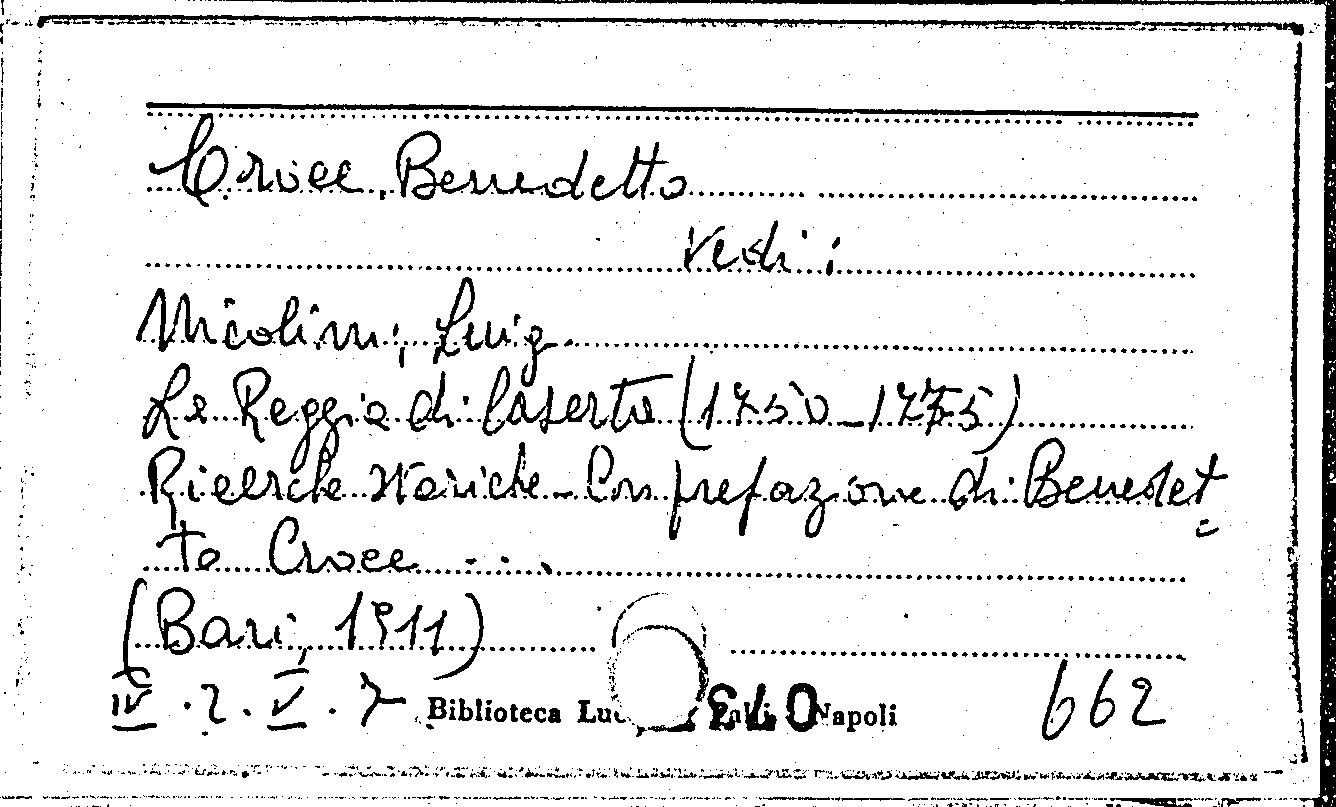 Croce, Benedetto
Vedi:
Nicolini, Luigi
La Reggia di Caserta (1750-1775)
Ricerche storiche - Con prefazione di Benedet
to Croce...
(Bari, 1911)
IV.2.V.7 Biblioteca Napoli 662